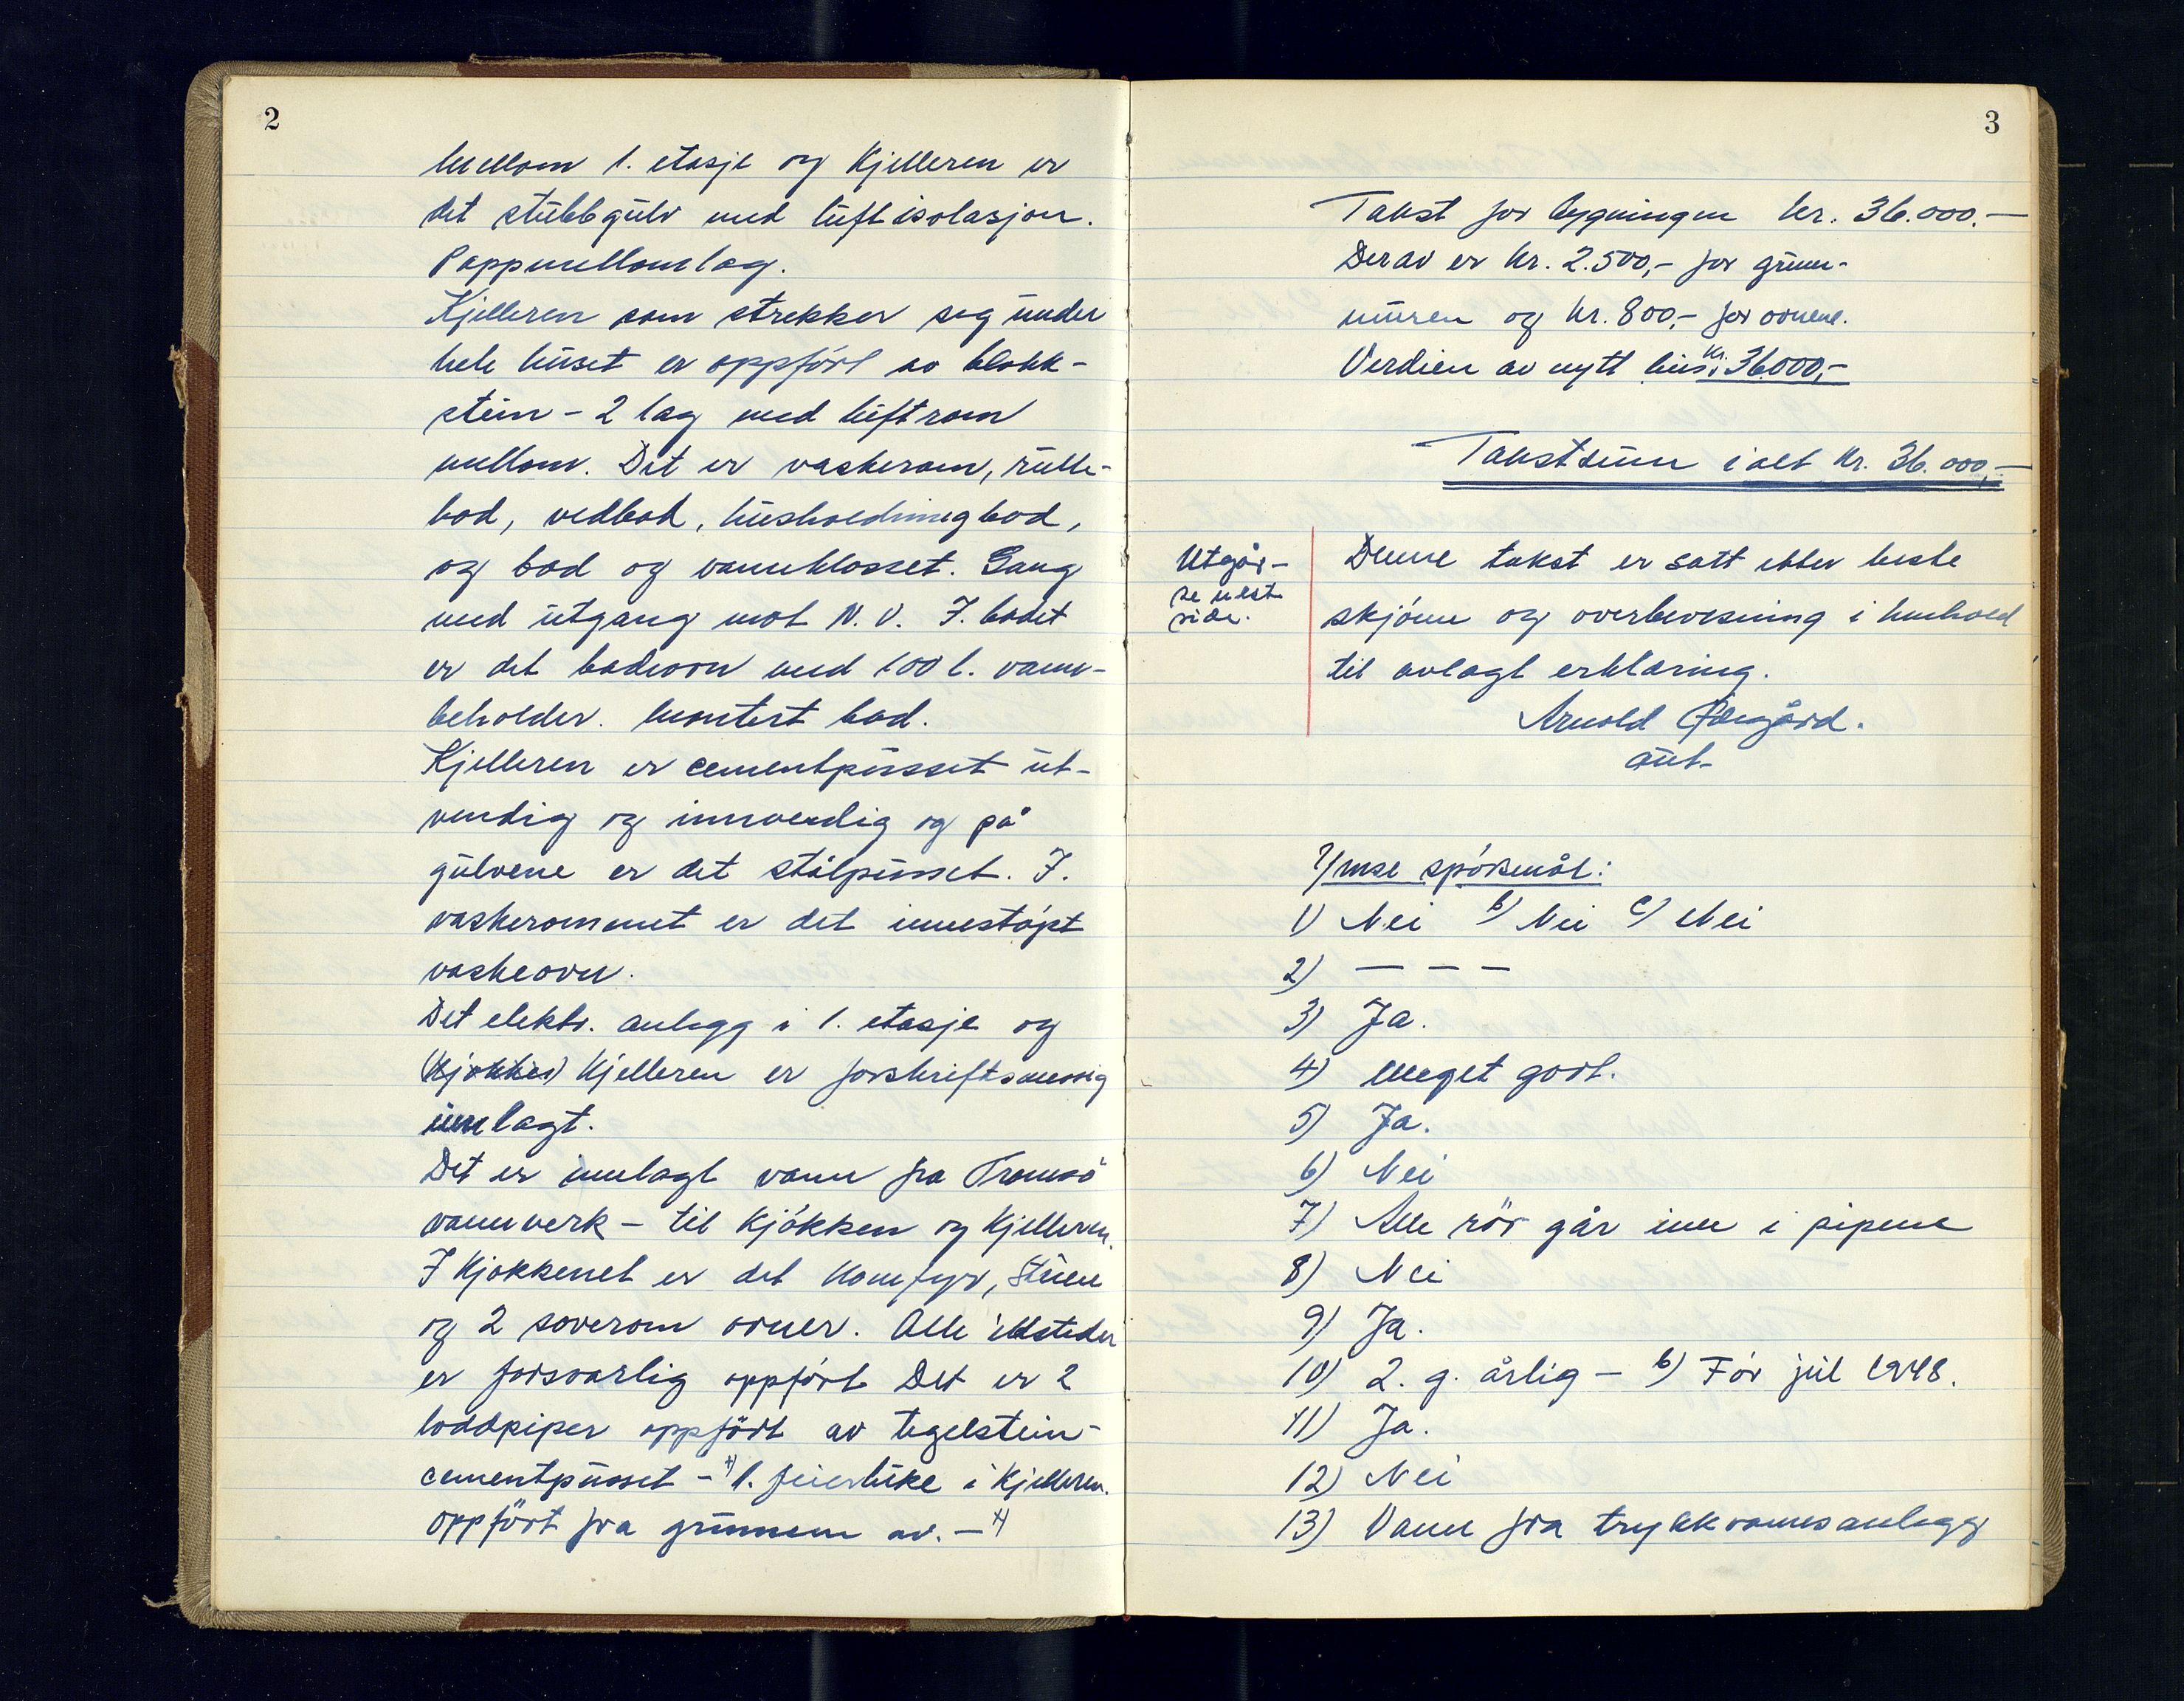 2
Mellom 1. etasje og Kjelleren er
det stubbgulv med luftisolasjon.
Pappmellomlag.
Kjelleren som strekker seg under
hele huset er oppført av blokk-
stein - 2 lag med luftrom
mellom. Det er vaskerom, rulle-
bod, vedbod, husholdningbod,
og bad og vannklosset. Gang
med utgang mot N. V. I. badet
er det badeovn med 100 l. vann-
beholder. Montert bad.
Kjelleren er cementpusset ut-
vendig og innvendig og på
gulvene er det stålpusset. I.
vaskerommet er det innestøpt
vaskeovn.
Det elektr. anlegg i 1. etasje og
(Kjøkken) Kjelleren er forskriftsmessig
innlagt.
Det er innlagt vann fra Tromsö
vannverk - til Kjøkken og Kjelleren.
I Kjøkkenet er det Komfyr, Stuen
og 2 soverom ovner. Alle ildsteder
er forsvarlig oppført Det er 2
loddpiper oppfört av tegelstein -
cementpusset - x) 1. feierluke i Kjelleren.
oppfört fra grunnen av. - x)
3
Takst for bygningen kr. 36.000.-
Derav er kr. 2.500,- for grunn-
muren og kr. 800,- for ovnene.
Verdien av nytt hus. kr. 36000,-
Takstsum i alt kr. 36.000,-
Utgår -
se nest
side.
Denne takst er satt etter beste
skjønn og overbevisning i henhold
til avlagt erklæring.
Arnold Ødegård.
aut.
Ymse spørsmål:
1) Nei b) Nei c) Nei
2) - - -
3) Ja.
4) Meget godt.
5) Ja.
6) Nei
7) Alle rör går inn i pipene
8) Nei
9) Ja.
10) 2. g. årlig - b) Før jul 1948.
11) Ja.
12) Nei
13) Vann fra trykkvannsanlegg